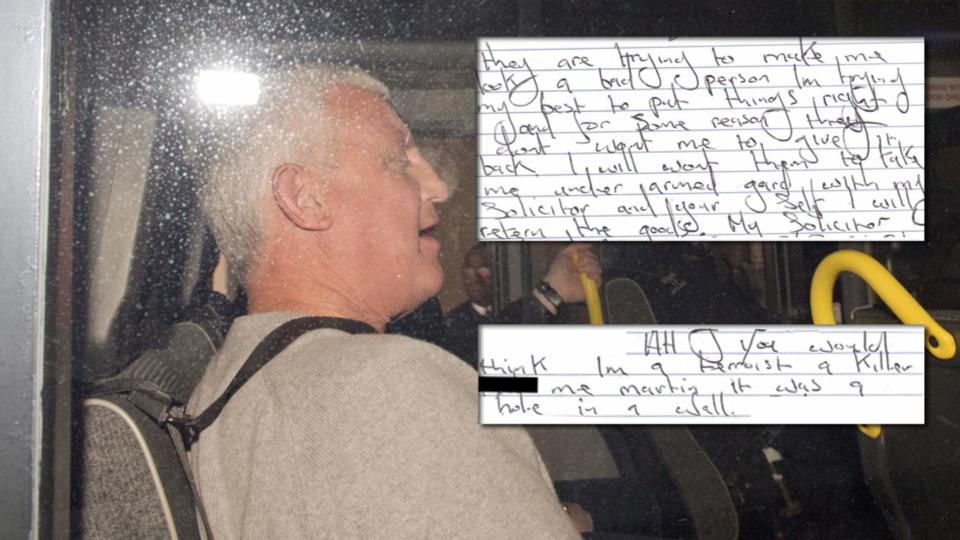 they are trying to make me
look a bad person Im trying
my best to put things right
and for some reason they
dont want me to give it
back I will want them to take
me under armed gard with my
Solicitor and your self I will
retern the goods. My Solicitor
you would
think Im a terroist a killer
me martin it was a
hole in a wall.